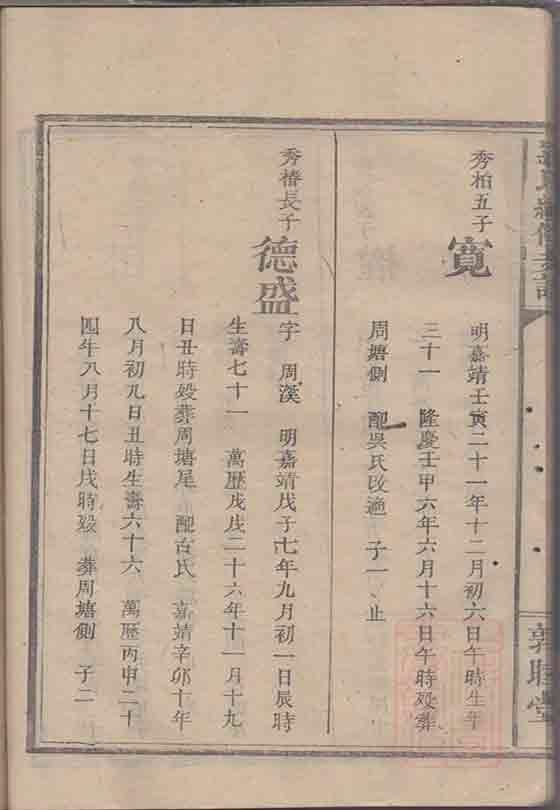 敦睦堂
秀柏五子
寬
明嘉靖壬寅二十一年十二月初六日午時生年
三十一 隆慶壬申六年六月十六日午時歿葬
周塘側 配吳氏改適 子一 止
秀椿長子
德盛
字 周漢 明嘉靖戊子七年九月初一日辰時
生壽七十一 萬歷戊戌二十六年十一月十九
日丑時歿葬周塘尾 配古氏 嘉靖辛卯十年
八月初九日丑時生壽六十六 萬歷丙申二十
四年八月十七日戌時歿 葬周塘側 子二